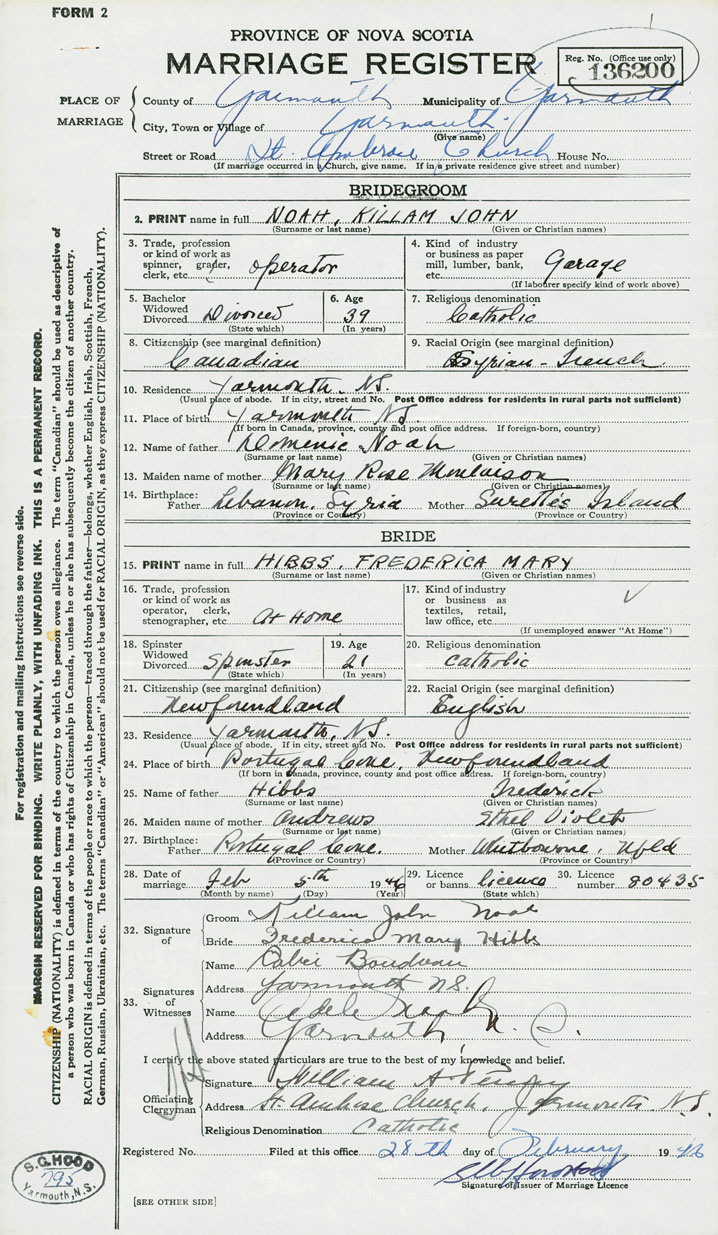 FORM 2
PROVINCE OF NOVA SCOTIA
MARRIAGE REGISTER
Reg. No. (Office use only)
136200
PLACE OF MARRIAGE
County of Yarmouth Municipality of Yarmouth
City, Town or Village of Yarmouth
(Give name)
Street or Road St. Ambrose Church House No.
(If marriage occurred in a Church, give name. If in a private residence give street and number)
BRIDEGROOM
2. PRINT name in full NOAH, KILLAM JOHN
(Surname or last name) (Given or Christian names)
3. Trade, profession or kind of work as spinner, grader, clerk, etc. operator
4. Kind of industry or business as paper mill, lumber, bank, etc. Garage
(If labourer specify kind of work above)
5. Bachelor Widowed Divorced Divorced
(State which)
6. Age 39
(In years)
7. Religious denomination Catholic
8. Citizenship (see marginal definition) Canadian
9. Racial Origin (see marginal definition) Syrian-French
10. Residence Yarmouth N.S.
(Usual place of abode. If in city, street and No. Post Office address for residents in rural parts not sufficient)
11. Place of birth Yarmouth N.S.
(If born in Canada, province, county and post office address. If foreign-born, country)
12. Name of father Domenic Noah
(Surname or last name) (Given or Christian names)
13. Maiden name of mother Mary Rose
(Surname or last name) (Given or Christian names)
14. Birthplace: Father Lebanon, Syria Mother Surette's Island
(Province or Country) (Province or Country)
BRIDE
15. PRINT name in full HIBBS, FREDERICA MARY
(Surname or last name) (Given or Christian names)
16. Trade, profession or kind of work as operator, clerk, stenographer, etc. At Home
17. Kind of industry or business as textiles, retail, law office, etc.
(If unemployed answer "At Home")
18. Spinster Widowed Divorced Spinster
(State which)
19. Age 21
(In years)
20. Religious denomination Catholic
21. Citizenship (see marginal definition) Newfoundland
22. Racial Origin (see marginal definition) English
23. Residence Yarmouth, N.S.
(Usual place of abode. If in city, street and No. Post Office address for residents in rural parts not sufficient)
24. Place of birth Portugal Cove, Newfoundland
(If born in Canada, province, county and post office address. If foreign-born, country)
25. Name of father Hibbs Frederick
(Surname or last name) (Given or Christian names)
26. Maiden name of mother Andrews Ethel Violet
(Surname or last name) (Given or Christian names)
27. Birthplace: Father Portugal Cove. Mother Whitbourne, Nfld
(Province or Country) (Province or Country)
28. Date of marriage Feb 5th 1946
(Month by name) (Day) (Year)
29. Licence or banns licence
(State which)
30. Licence number 80435
32. Signature of
Groom Killam John Noah
Bride Frederica Mary Hibbs
33. Signatures of Witnesses
Name Boudreau
Address Yarmouth N.S.
Name Adele
Address Yarmouth N. S.
I certify the above stated particulars are true to the best of my knowledge and belief.
Officiating Clergyman
Signature William A
Address St. Ambrose Church, Yarmouth N.S.
Religious Denomination Catholic
Registered No. Filed at this office 28th day of February 1946
Signature of Issuer of Marriage Licence
[SEE OTHER SIDE]
For registration and mailing instructions see reverse side.
MARGIN RESERVED FOR BINDING. WRITE PLAINLY, WITH UNFADING INK. THIS IS A PERMANENT RECORD.
CITIZENSHIP (NATIONALITY) is defined in terms of the country to which the person owes allegiance. The term "Canadian" should be used as descriptive of
a person who was born in Canada or who has rights of Citizenship in Canada, unless he or she has subsequently become the citizen of another country.
RACIAL ORIGIN is defined in terms of the people or race to which the person—traced through the father—belongs, whether English, Irish, Scottish, French,
German, Russian, Ukrainian, etc. The terms "Canadian" or "American" should not be used for RACIAL ORIGIN, as they express CITIZENSHIP (NATIONALITY).
S. G. HOOD
795
Yarmouth, N.S.